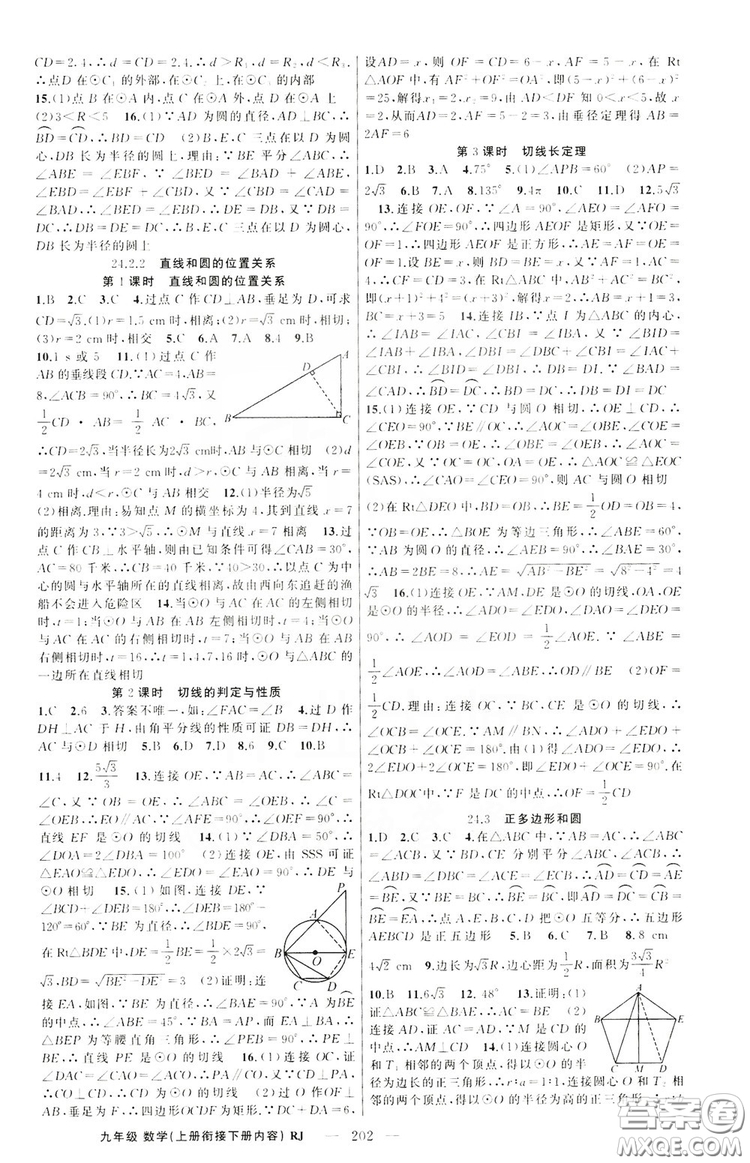 CD=2.4,∴d=CD=2.4.∴d>R₁,d<R₂,d<R₃.
∴点D在⊙C₁的外部,在⊙C₂、⊙C₃的内部
15.(1)点B在⊙A内,点C在⊙A上
(2)3<R<5 16.(1)∵AD为圆的直径,AD⊥BC,∴
BD=CD,∴BD=CD (2)B,E,C三点在以D为圆
心,DB长为半径的圆上,理由:∵BE平分∠ABC,∴
∠ABE=∠EBC,又∵∠BED=∠BAD+∠ABE,
∠EBD=∠EBF+∠CBD,又∵BD=CD,∴∠CBD
=∠BAD,∴∠DBE=∠BED,∴DB=DE,又∵DB=
DC,∴DE=DB=DC,∴B,E,C三点在以D为圆心,
DB长为半径的圆上
24.2.2 直线和圆的位置关系
第1课时 直线和圆的位置关系
1.B 2.C 3.C 4.过点C作CD⊥AB,垂足为D,可求
CD=√3,(1)r=1.5 cm时,相离;(2)r=√3 cm时,相切;
(3)r=2 cm时,相交 5.C 6.A 7.A 8.4 9.B
10.1 s或5 11.(1)过点C作
AB的垂线段CD,∵AC=4,AB=
8,∠ACB=90°,∴BC=4√3,又
1/2 CD·AB=1/2 AC·BC,
∴CD=2√3,当半径长为2√3 cm时,AB与⊙C相切 (2)d
=2√3,当r=2 cm时,d>r,⊙C与AB相离;当r=
4 cm时,d<r,⊙C与AB相交 12.(1)半径为√5
(2)相离,理由:易知点M的横坐标为4,其到直线x=7
的距离为3,∵3>√5,∴⊙M与直线x=7相离 13.过
点C作CB⊥水平轴,则由已知条件可得∠CAB=30°,
AC=80千米,∴CB=40千米,∵40>30,∴以点C为中
心的圆与水平轴所在的直线相离,故由西向东追赶的渔
船不会进入危险区 14.当⊙O与AC在左侧相切
时,t=1;当⊙O与AB在AB左侧相切时,t=4;当⊙O
与AC在右侧相切时,t=7;当⊙O与AB在AB右
侧相切时,t=16,∴t=1,4,7,16时,⊙O与△ABC的
一边所在直线相切
第2课时 切线的判定与性质
1.C 2.6 3.答案不唯一,如:∠FAC=∠B 4.过D作
DH⊥AC于H,由角平分线的性质可证DB=DH,
∴AC与⊙D相切 5.D 6.B 7.D 8.6 9.C 10.B
11.4 12.5√3/3 13.连接OE,∵AB=AC,∴∠B=
∠C,又∵OB=OE,∴∠B=∠OEB,∴∠OEB=
∠C,∴∠OEF+∠CEF=90°,∴∠OEF=90°,∴
直线EF是⊙O的切线 14.(1)∵∠DBA=50°,∴
∠DOA=2∠DBA=100° (2)连接OE,由SSS可证
△EAO≌△EDO,∴∠EDO=∠EAO=90°,∴DE
与⊙O相切 15.(1)如图,连接DE,∵
∠BCD+∠DEB=180°,∴∠DEB=180°-
120°=60°,∵BE为直径,∴∠BDE=90°,
在Rt△BDE中,DE=1/2 BE=1/2×2√3=
√3,BD=√(BE²-DE²)=3 (2)证明:连
接EA,如图,∵BE为直径,∴∠BAE=90°,∵A为BE
的中点,∴∠ABE=45°,∵BA=AP,而EA⊥BA,∴
△BEP为等腰直角三角形,∴∠PEB=90°,∴PE⊥
BE,∴直线PE是⊙O的切线 16.(1)连接OC,证
∠DAC=∠CAO=∠ACO,∴PA∥CO,又∵CD⊥
PA,∴CO⊥CD,∴CD为⊙O的切线 (2)过O作OF⊥
AB,垂足为F,∴四边形OCDF为矩形,∵DC+DA=6,
设AD=x,则OF=CD=6-x,AF=5-x,在Rt
△AOF中,有AF²+OF²=OA²,即(5-x)²+(6-x)²
=25,解得x₁=2,x₂=9,由AD<DF知0<x<5,故x=
2,从而AD=2,AF=5-2=3,由垂径定理得AB=
2AF=6
第3课时 切线长定理
1.D 2.B 3.A 4.75° 5.(1)∠APB=60° (2)AP=
2√3 6.B 7.B 8.135° 9.4π 10.C 11.D 12.5√3
13.连接OE,OF,∵∠A=90°,∠AEO=∠AFO=
90°,∴∠FOE=90°,∴四边形AFOE是矩形,又∵OE=
OF=1,∴四边形AFOE是正方形,∴AE=AF=OE=
OF=1,设BE=x,则BD=x,又∵AE=AF=1,CD=
CF=3,∴在Rt△ABC中,AB²+AC²=BC²,
即(x+1)²+4²=(x+3)²,解得x=2,∴BD=2,∴
BC=x+3=5 14.连接IB,∵点I为△ABC的内心,
∴∠IAB=∠IAC,∠IBA=∠IBC,∵∠BID=
∠IAB+∠IBA,∠DBI=∠DBC+∠IBC=∠DAC
+∠IBC,∴∠BID=∠DBI,∴ID=BD,∵∠BAD
=∠CAD,∴BD=DC,∴BD=DC,∴ID=BD=DC
15.(1)连接OE,∵CD与圆O相切,∴OE⊥CD,∴
∠CEO=90°,∵BE∥OC,∴∠AOC=∠OBE,∠COE=
∠OEB,∵OB=OE,∴∠OBE=∠OEB,∴∠AOC=
∠COE,又∵OC=OC,OA=OE,∴△AOC≌△EOC
(SAS),∴∠CAO=∠CEO=90°,则AC与圆O相切
(2)在Rt△DEO中,∵BD=OB,∴BE=1/2 OD=OB=4,
∵OB=OE,∴△BOE为等边三角形,∴∠ABE=60°,
∴AB=2BE=8,∴AE=√(AB²-BE²)=√(8²-4²)=4
√3 16.(1)连接OE,∵AM,DE是⊙O的切线,OA,OE
是⊙O的半径,∴∠ADO=∠EDO,∠DAO=∠DEO=
90°,∴∠AOD=∠EOD=1/2∠AOE,∵∠ABE=
1/2∠AOE,∴∠AOD=∠ABE,∴OD∥BE (2)OF=
1/2 CD,理由:连接OC,∵BC,CE是⊙O的切线,∴
∠OCB=∠OCE.∵AM∥BN,∴∠ADO+∠EDO+
∠OCB+∠OCE=180°,由(1)得∠ADO=∠EDO,∴
2∠EDO+2∠OCE=180°,即∠EDO+∠OCE=90°,在
Rt△DOC中,∵F是DC的中点,∴OF=1/2 CD
24.3 正多边形和圆
1.D 2.C 3.C 4.在△ABC中,∵AB=AC,∴∠ABC
=∠ACB,又∵BD,CE分别平分∠ABC,∠ACB,
∴∠ABD=∠DBC=∠BCE=∠ACE,∴AD=CD=AE
=BE,又∵BE=BC,∴BE=BC,∴AE=BE=BC=CD
=AD,∴点A,E,B,C,D把⊙O五等分,∴五边形
AEBCD是正五边形 5.B 6.C 7.B 8.8 cm
4√2 cm 9.边长为√3R,边心距为1/2R,面积为3√3/4R²
10.B 11.6√3 12.48° 13.证明:(1)
证△ABC≌△AED即可 (2)连接AC,
AD,∵AC=AD,又∵AM是CD的中
点,∴AM⊥CD 14.(1)连接圆心O和
T₁相邻的两个顶点,得以⊙O的半径
为边长的正三角形,∴r:a=1:1,连接圆心O和T₂相
邻的两个顶点,得以⊙O的半径为高的正三角形,∴
九年级 数学(上册衔接下册内容) RJ — 202 —
答案圈
MXQE.COM